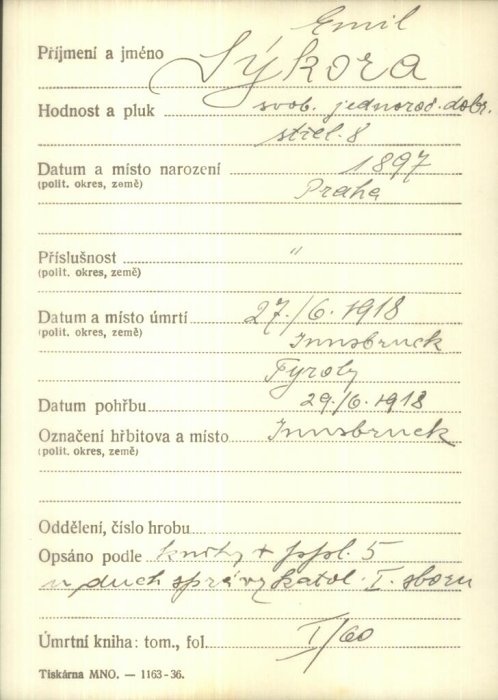 Emil
Příjmení a jméno Sýkora
Hodnost a pluk svob. jednoroč. dobr.
střel. 8
Datum a místo narození 1897
(polit. okres, země) Praha
Příslušnost "
(polit. okres, země)
Datum a místo úmrtí 27./6. 1918
(polit. okres, země) Innsbruck
Tyroly
Datum pohřbu 29./6. 1918
Označení hřbitova a místo Innsbruck
(polit. okres, země)
Oddělení, číslo hrobu
Opsáno podle knihy + ppl. 5
u duch správy katol. I. sboru
Úmrtní kniha: tom., fol. I/60
Tiskárna MNO. — 1163-36.